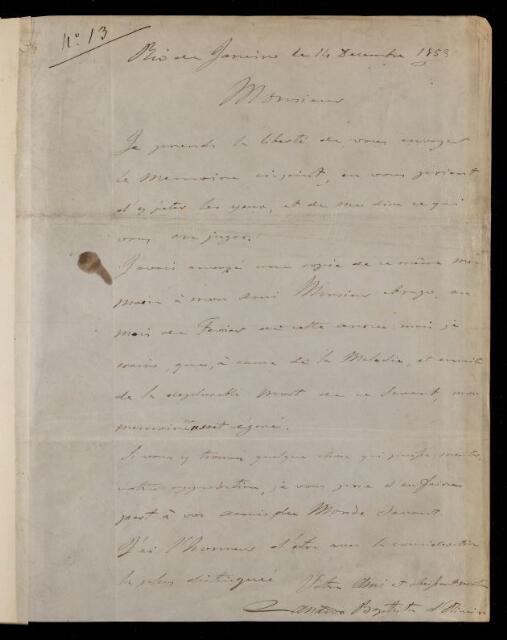 No. 13
Rio de Janeiro le 14 Decembre 1853
Monsieur
Je prends la liberté de vous envoyer
le Memoire cijoint, en vous priant
d'y jeter les yeux, et de me dire ce qui
vous en jugez.
J'avais envoyé une copie de ce même me-
moire à mon ami Monsieur Arago, au
mois de Fevrier de cette année mais je
crains, que, à cause de la Maladie, et ensuite
de la deplorable mort de ce Savant, mon
memoire ne soit egaré.
Si vous y trouvez quelque chose qui puisse meriter
votre approbation, je vous prie d'en faire
part à vos amis du Monde Savant.
J'ai l'honneur d'être avec la consideration
la plus distinguée
Votre Ami et
Baptista d'